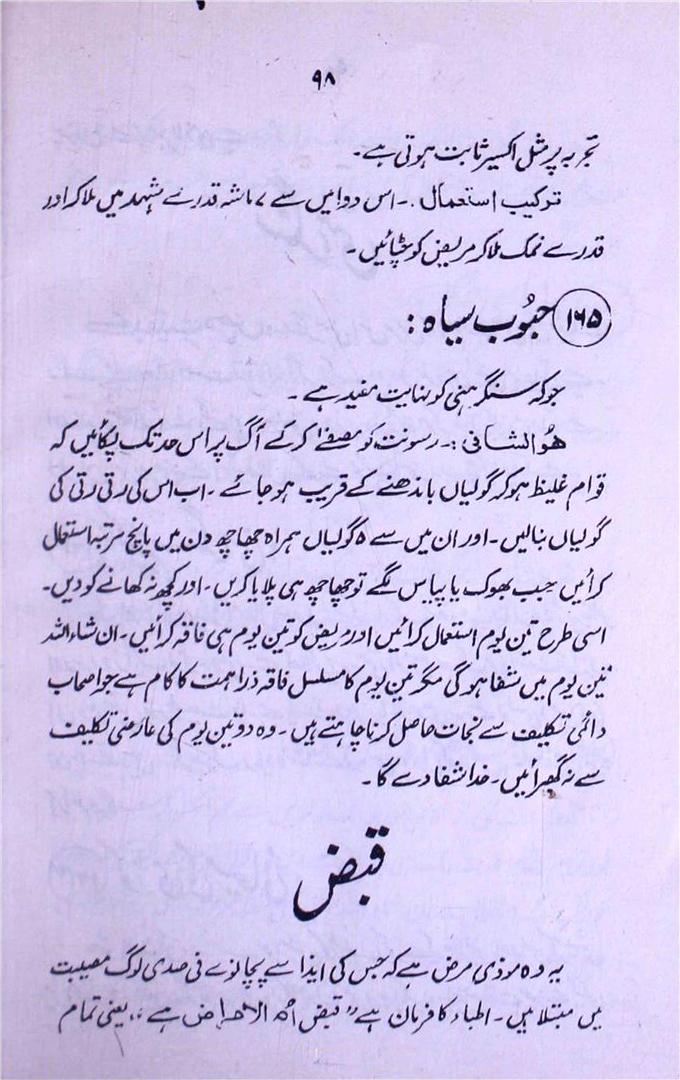 ۹۸
تجربہ پر مثل اکسیر ثابت ہوتی ہے۔
ترکیب استعمال :۔ اس دوا میں سے ۷ ماشہ قدرے شہد میں ملا کر اور
قدرے نمک ملا کر مریض کو چٹائیں۔
۱۶۵ حبُوب سیاہ :
جو کہ سنگرہنی کو نہایت مفید ہے۔
ھُوالشافی :۔ رسونت کو مصفےٰ کر کے آگ پر اس حد تک پکائیں کہ
قوام غلیظ ہو کر گولیاں باندھنے کے قریب ہو جائے۔ اب اس کی رتی رتی کی
گولیاں بنالیں۔ اور ان میں سے ۵ گولیاں ہمراہ چھاچھ دن میں پانچ مرتبہ استعمال
کرائیں جب بھوک یا پیاس لگے تو چھاچھ ہی پلایا کریں۔ اور کچھ نہ کھانے کو دیں۔
اسی طرح تین یوم استعمال کرائیں اور مریض کو تین یوم ہی فاقہ کرائیں۔ ان شاء اللہ
تین یوم میں شفا ہوگی مگر تین یوم کا مسلسل فاقہ ذرا ہمت کا کام ہے جو اصحاب
دائمی تکلیف سے نجات حاصل کرنا چاہتے ہیں۔ وہ دو تین یوم کی عارضی تکلیف
سے نہ گھبرائیں۔ خدا شفا دے گا۔
قبض
یہ وہ موذی مرض ہے کہ جس کی ایذا سے پچانوے فی صدی لوگ مصیبت
میں مبتلا ہیں۔ اطباء کا فرمان ہے "قبض اُم الامراض ہے"، یعنی تمام